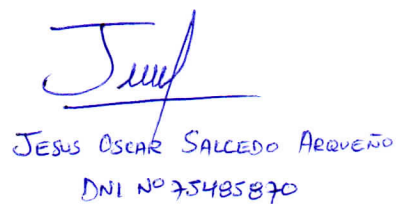 JESUS OSCAR SALCEDO ARQUEÑO
DNI Nº 75485870